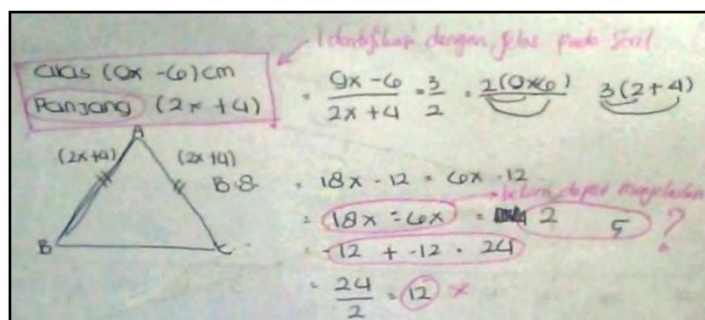 Identifikasi dengan jelas pada soal
alas (9x - 6) cm
Panjang (2x + 4)
= 9x - 6 / 2x + 4 = 3/2 = 2(9x6) 3(2+4)
A
(2x+4) (2x+4)
B C
= 18x - 12 = 6x - 12
belum dapat menjelaskan
= 18x = 6x = 2 5 ?
= -12 + -12 = 24
= 24/2 = 12 x